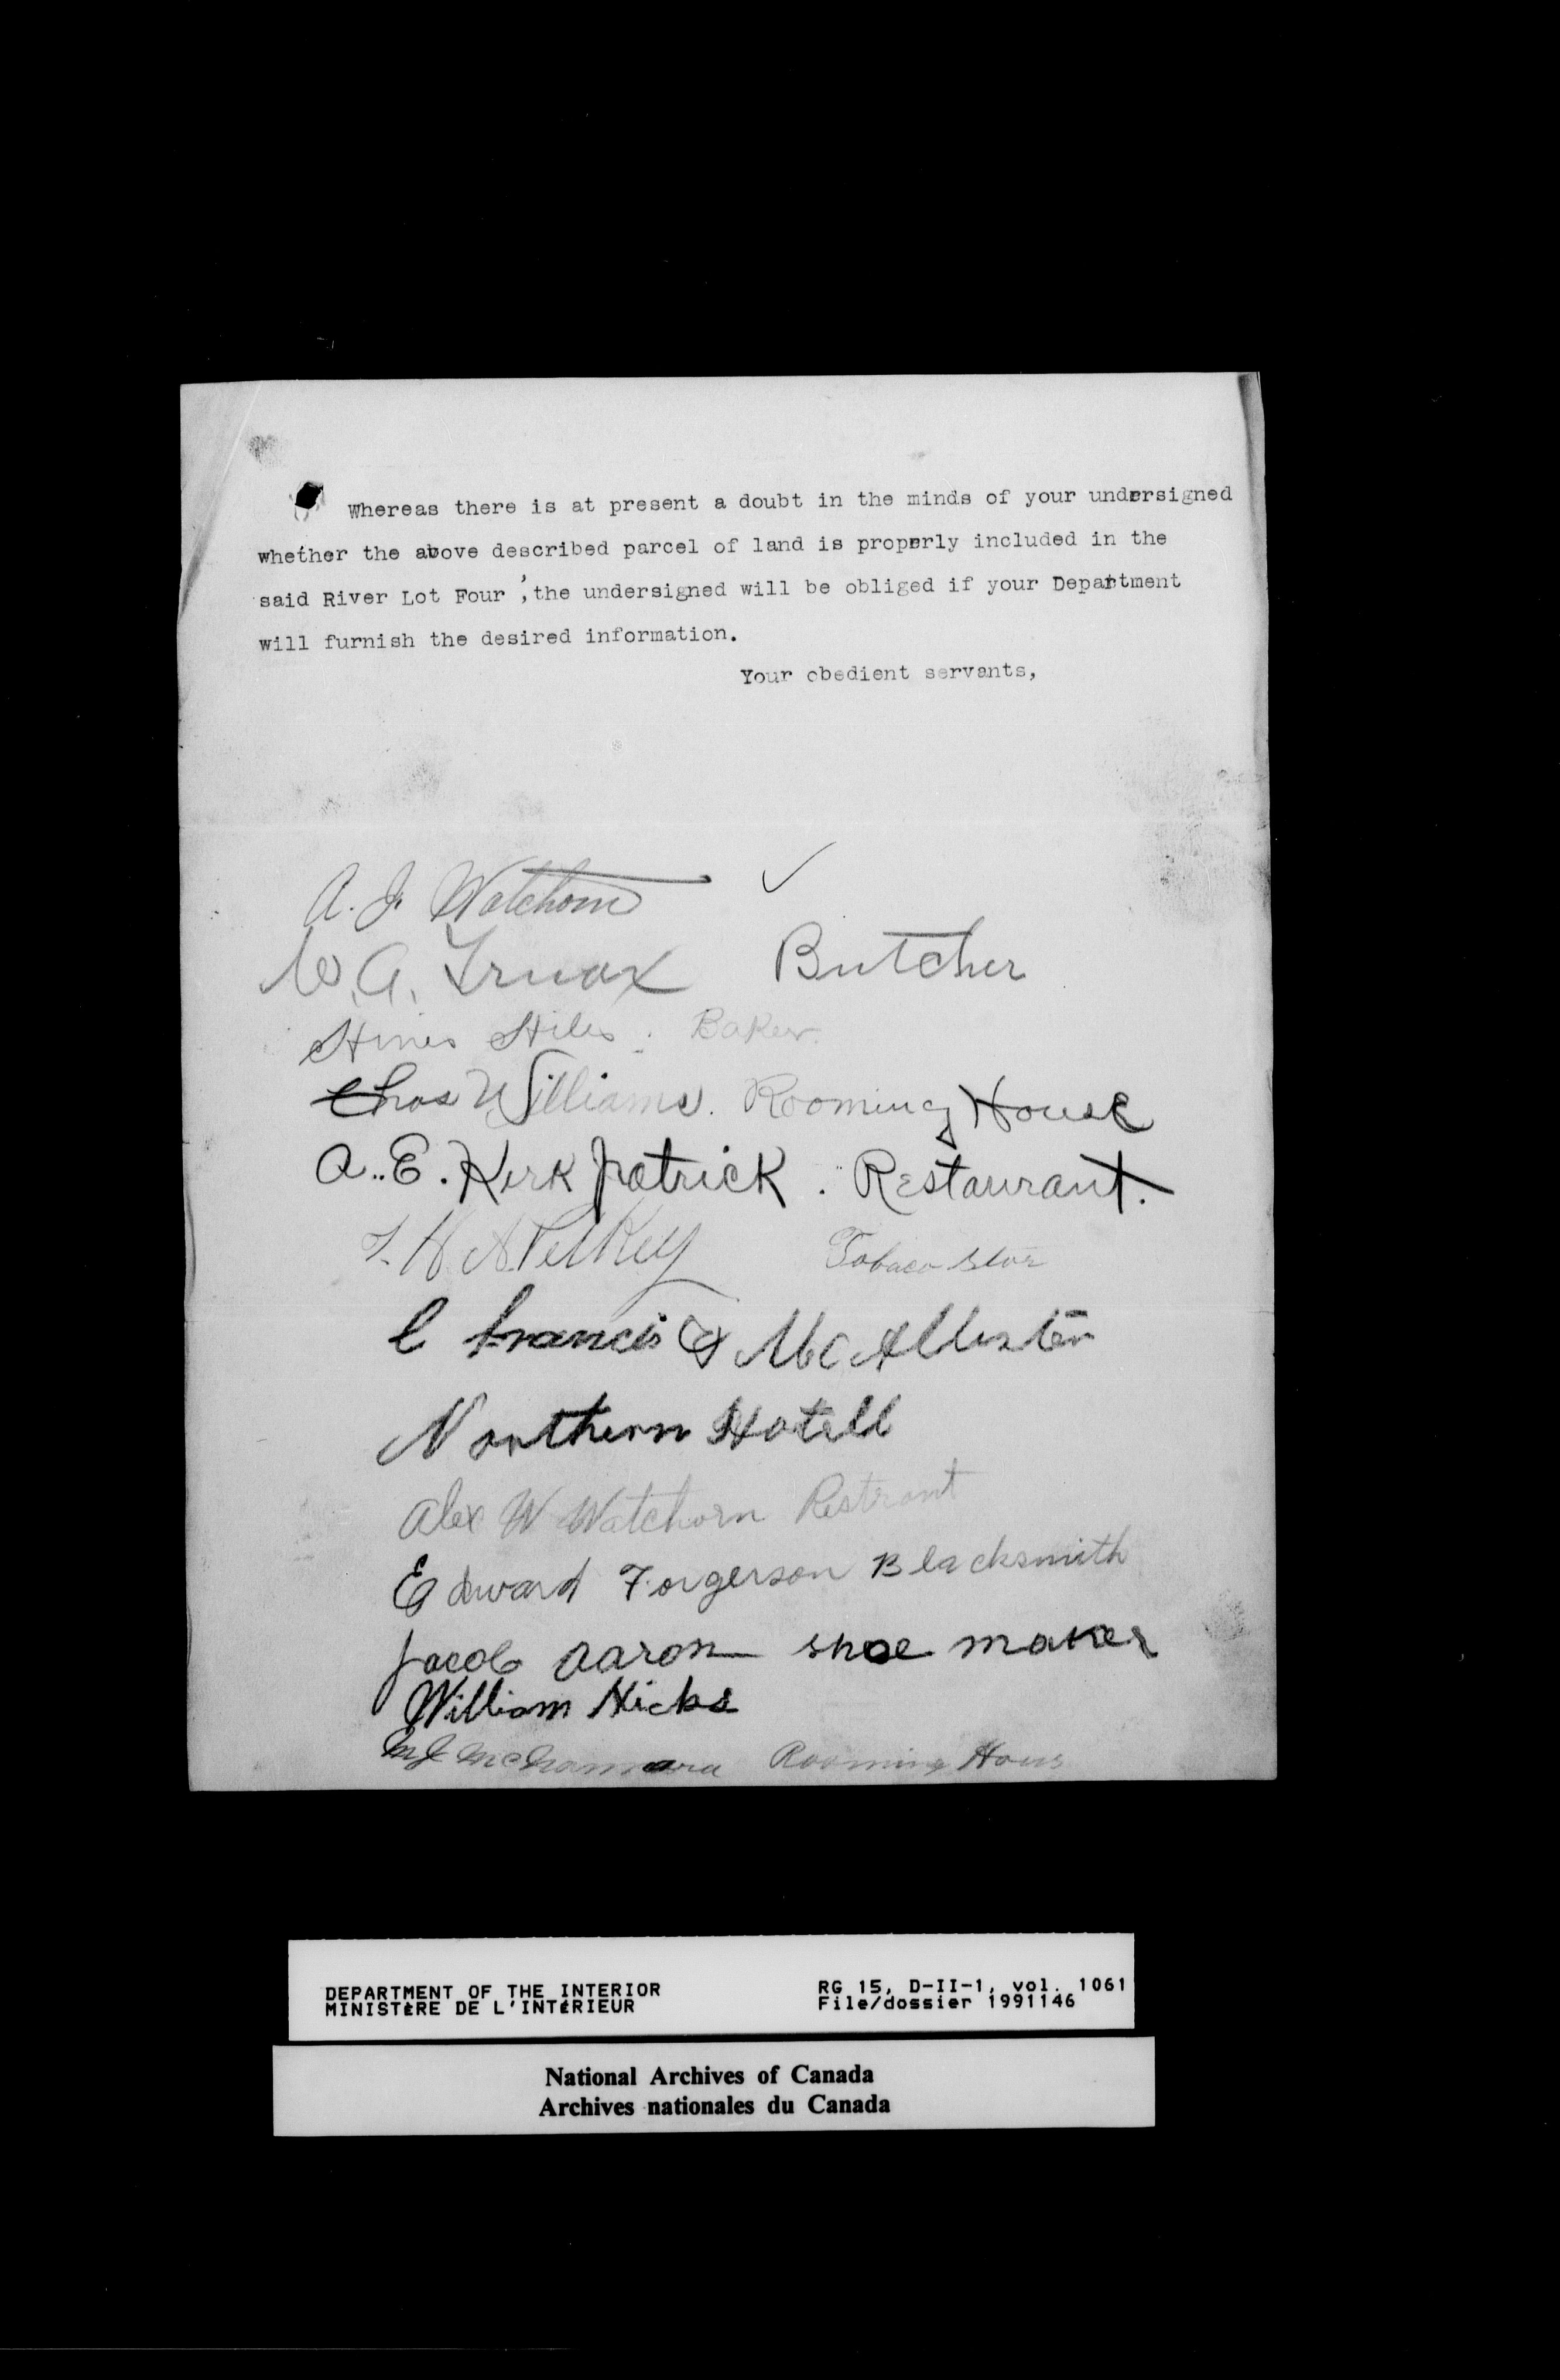 Whereas there is at present a doubt in the minds of your undersigned
whether the above described parcel of land is properly included in the
said River Lot Four, the undersigned will be obliged if your Department
will furnish the desired information.
Your obedient servants,
A. J. Watchorn
W. A. Truax Butcher
Stiles. Baker.
Chas Williams. Rooming House
A. E. Kirkpatrick. Restaurant.
Tobaco Stor
C Francis & McAllister
Northern Hotell
Alex W Watchorn Restrant
Edward Forgerson Blacksmith
Jacob Aaron shoe maker
William Hicks
M J McNamara Rooming Hous
DEPARTMENT OF THE INTERIOR RG 15, D-II-1, vol. 1061
MINISTÈRE DE L'INTÉRIEUR File/dossier 1991146
National Archives of Canada
Archives nationales du Canada